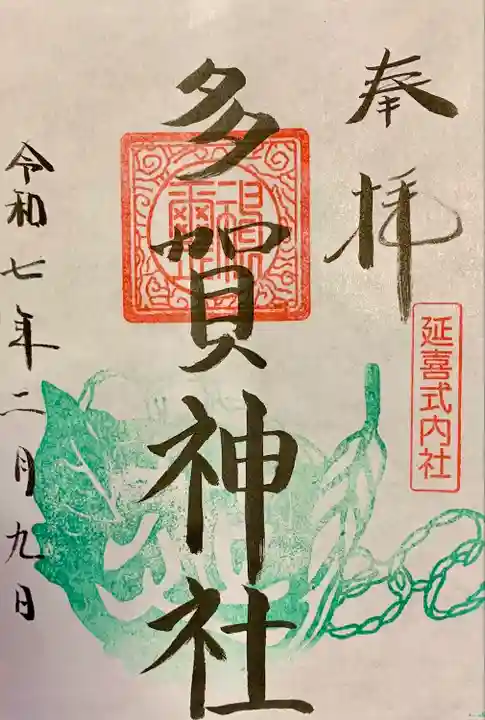 奉拝
延喜式内社
多賀神社
令和七年二月九日